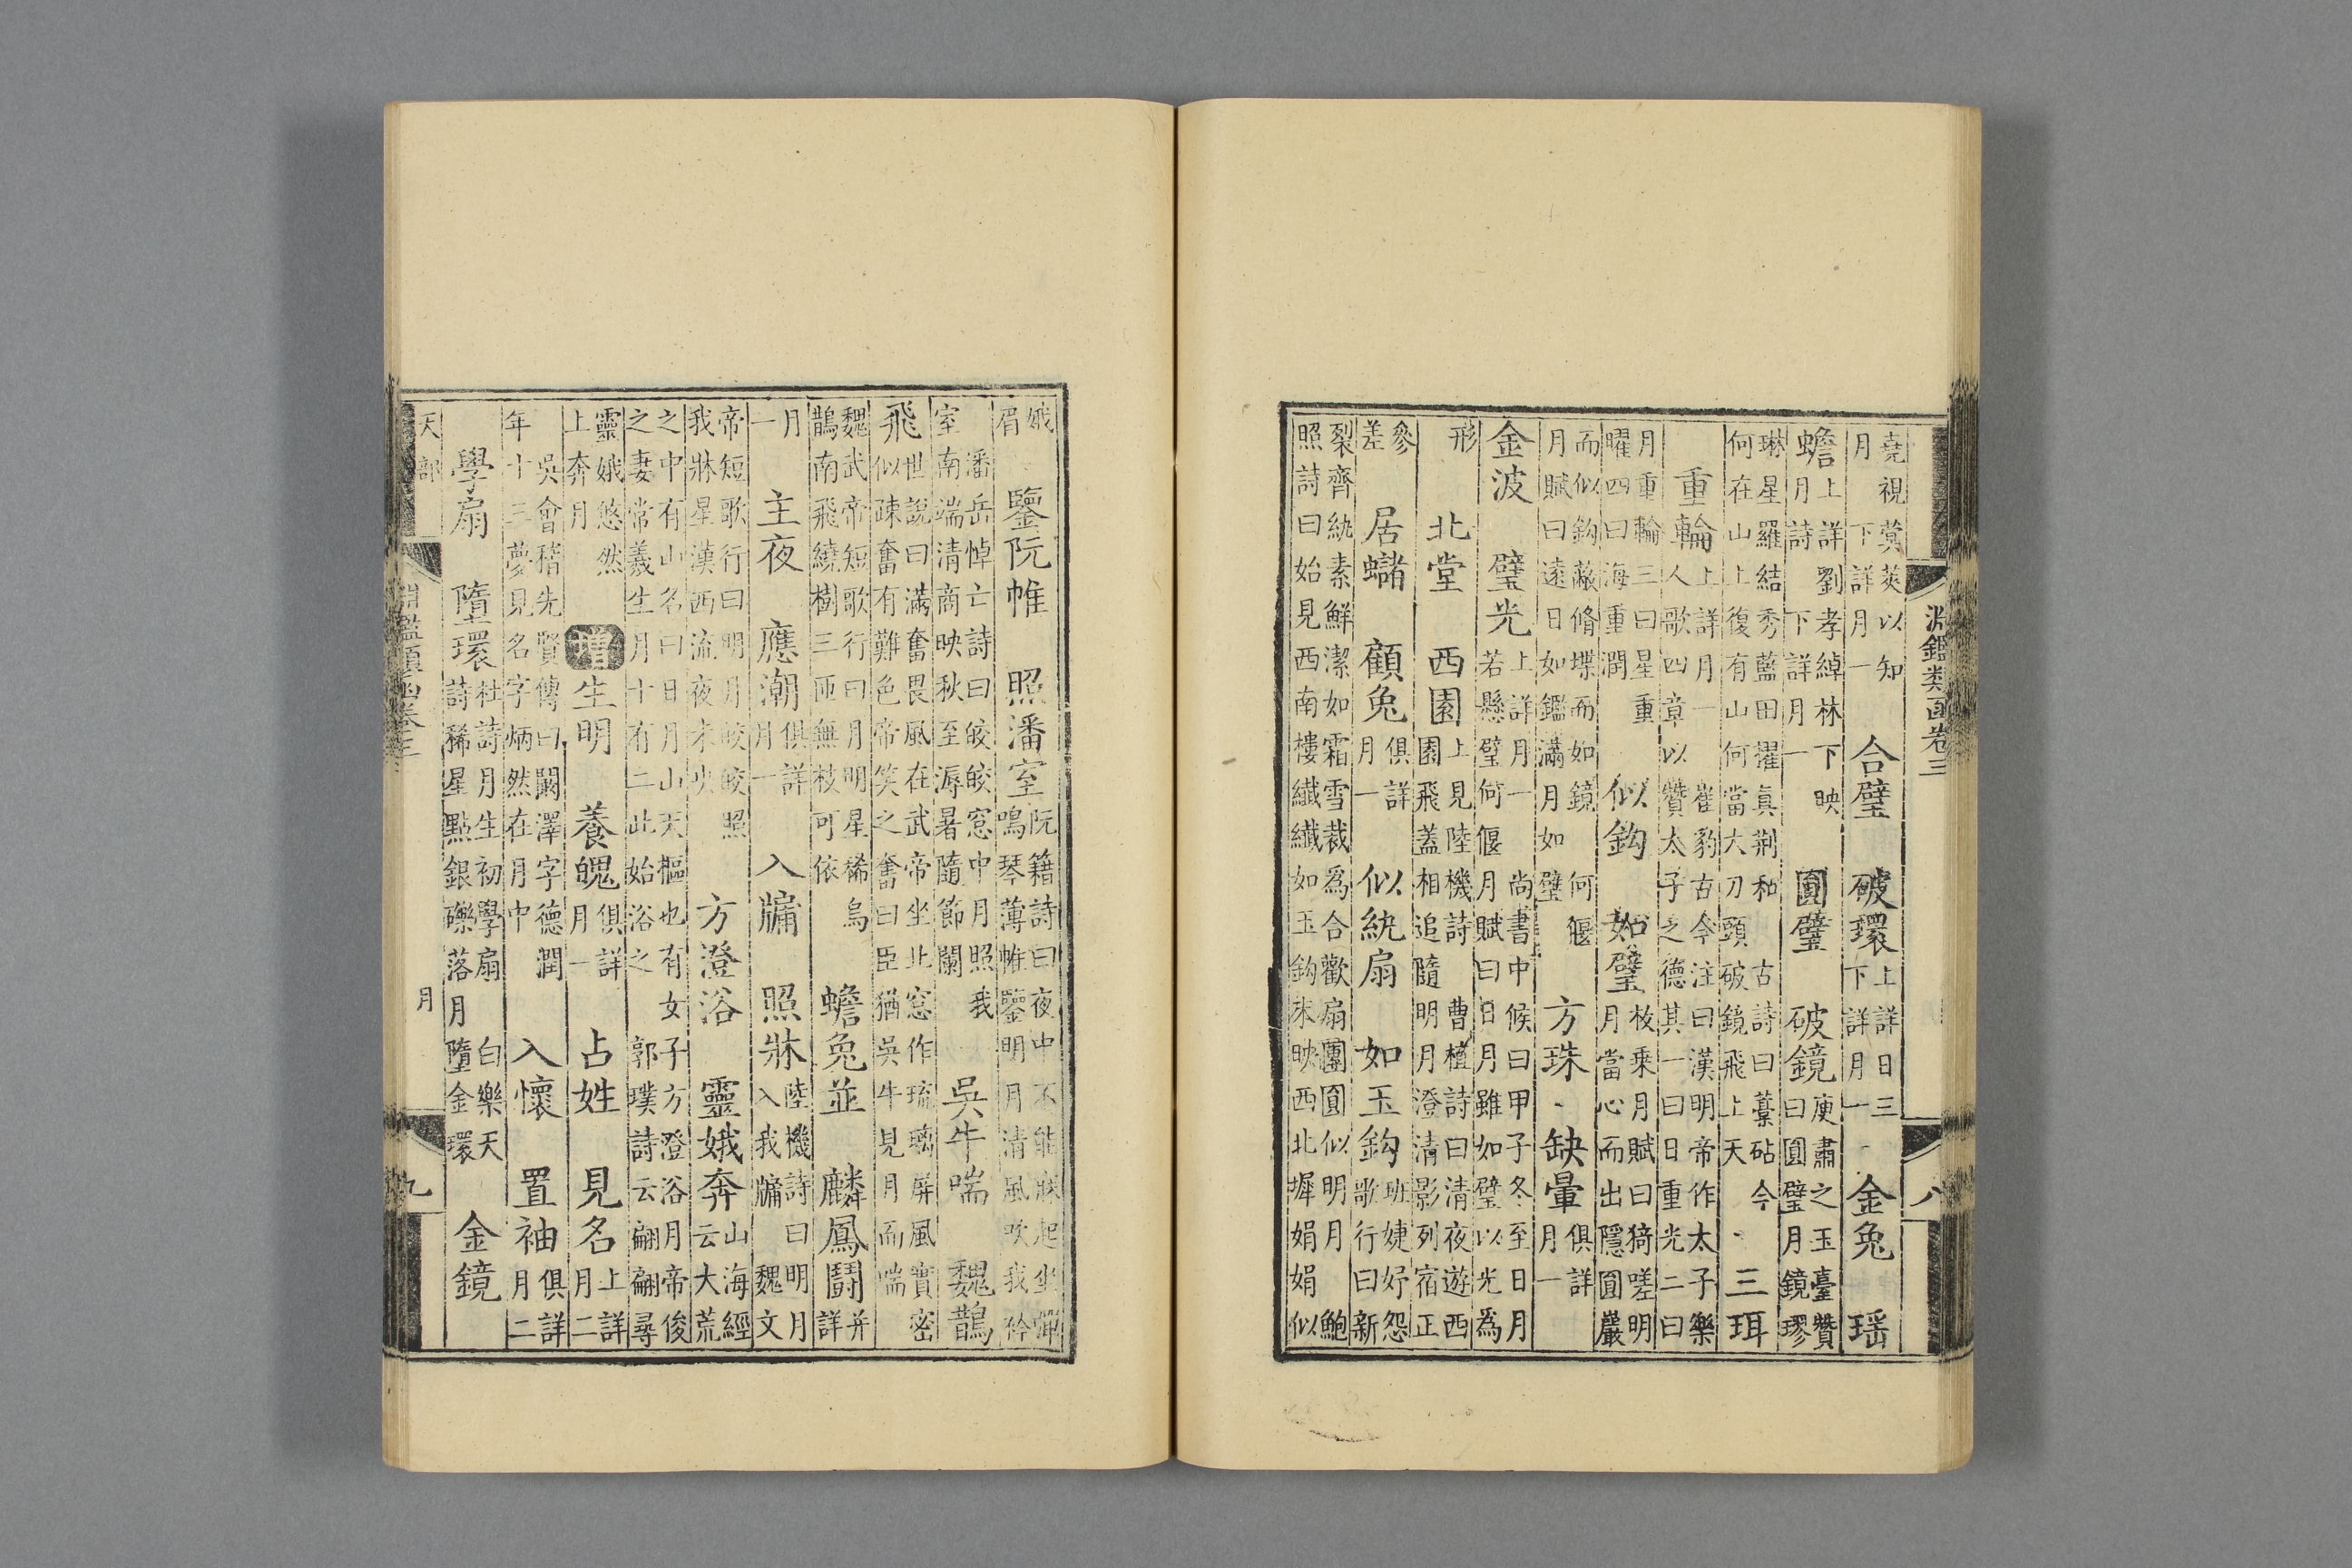 淵鑑類函卷三
八
堯視蓂莢以知
月 下詳月一
合璧 破環
上詳日三
下詳月一
金兔 瑶
蟾
上詳劉孝綽林下映
月詩 下詳月一
圓璧 破鏡
庾肅之玉臺贊
曰圓璧月鏡璆
琳星羅結秀藍田擢眞荆和 古詩曰藁砧今
何在山上復有山何當大刀頭破鏡飛上天
三珥
重輪
上詳月一 崔豹古今注曰漢明帝作太子樂
人歌四章以贊太子之德其一曰日重光二曰
月重輪三曰星重
曜四曰海重潤
似鈎 如璧
枚乘月賦曰猗嗟明
月當心而出隱圓巖
而似鈎蔽脩堞而如鏡 何偃
月賦曰遠日如鑑滿月如璧
方珠 缺暈
俱詳
月一
金波 璧光
上詳月一 尚書中候曰甲子冬至日月
若懸璧何偃月賦曰日月雖如璧以光爲
形
北堂 西園
上見陸機詩 曹植詩曰清夜遊西
園飛蓋相追隨明月澄清影列宿正
參
差
居蠩 顧兔
俱詳
月一
似紈扇 如玉鈎
班婕妤怨
歌行曰新
裂齊紈素鮮潔如霜雪裁爲合歡扇團圓似明月 鮑
照詩曰始見西南樓纖纖如玉鈎末映西北墀娟娟似
娥
眉
鑒阮帷 照潘室
阮籍詩曰夜中不能寐起坐彈
鳴琴薄帷鑒明月清風吹我衿
潘岳悼亡詩曰皎皎窓中月照我
室南端清商映秋至溽暑隨節闌
吳牛喘 魏鵲
飛
世說曰滿奮畏風在武帝坐北窓作琉璃屏風實密
似疎奮有難色帝笑之奮曰臣猶吳牛見月而喘
魏武帝短歌行曰月明星稀烏
鵲南飛繞樹三匝無枝可依
蟾兔並 麟鳳鬬
并
詳
月
一
主夜 應潮
俱詳
月一
入牖 照牀
陸機詩曰明月
入我牖 魏文
帝短歌行曰明月皎皎照
我牀星漢西流夜未央
方澄浴 靈娥奔
山海經
云大荒
之中有山名曰日月山天樞也有女子方澄浴月帝俊
之妻常羲生月十有二此始浴之 郭璞詩云翩翩尋
靈娥悠然
上奔月
增
生明 養魄
俱詳
月一
占姓 見名
上詳
月二
吳會稽先賢傳曰闞澤字德潤
年十三夢見名字炳然在月中
入懷 置袖
俱詳
月二
學扇 墮環
杜詩月生初學扇 白樂天
詩稀星點銀礫落月墮金環
金鏡
天部
淵鑑類函卷三
月
九